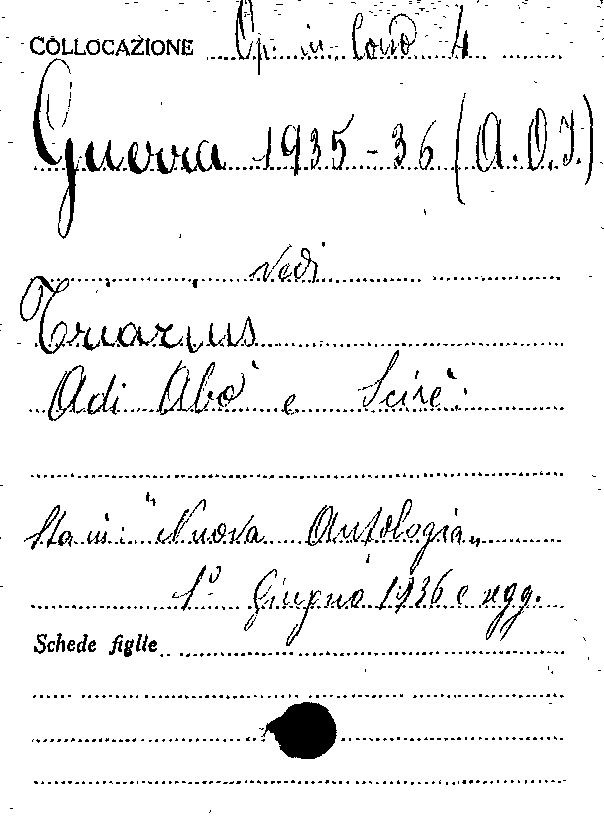 COLLOCAZIONE Op. in corso 4
Guerra 1935-36 (A.O.I.)
vedi
Triarius
Adi Abò e Scirè.
Sta in: "Nuova Antologia„
1° Giugno 1936 e segg.
Schede figlie